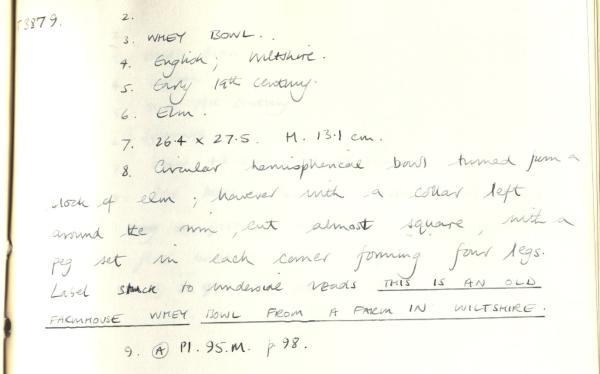 3879. 2.
3. WHEY BOWL.
4. English; Wiltshire.
5. Early 19th century.
6. Elm.
7. 26.4 x 27.5. H. 13.1 cm.
8. Circular hemispherical bowl turned from a
block of elm; however with a collar left
around the rim, cut almost square, with a
peg set in each corner forming four legs.
Label stuck to underside reads THIS IS AN OLD
FARMHOUSE WHEY BOWL FROM A FARM IN WILTSHIRE.
9. A Pl. 95.M. p 98.